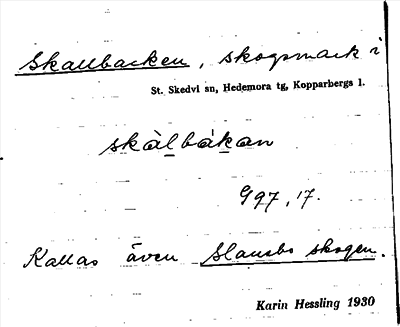 Skallbacken, skogsmark i
St. Skedvi sn, Hedemora tg, Kopparbergs l.
skàlbákan
997, 17.
Kallas även Slansbo skogen.
Karin Hessling 1930